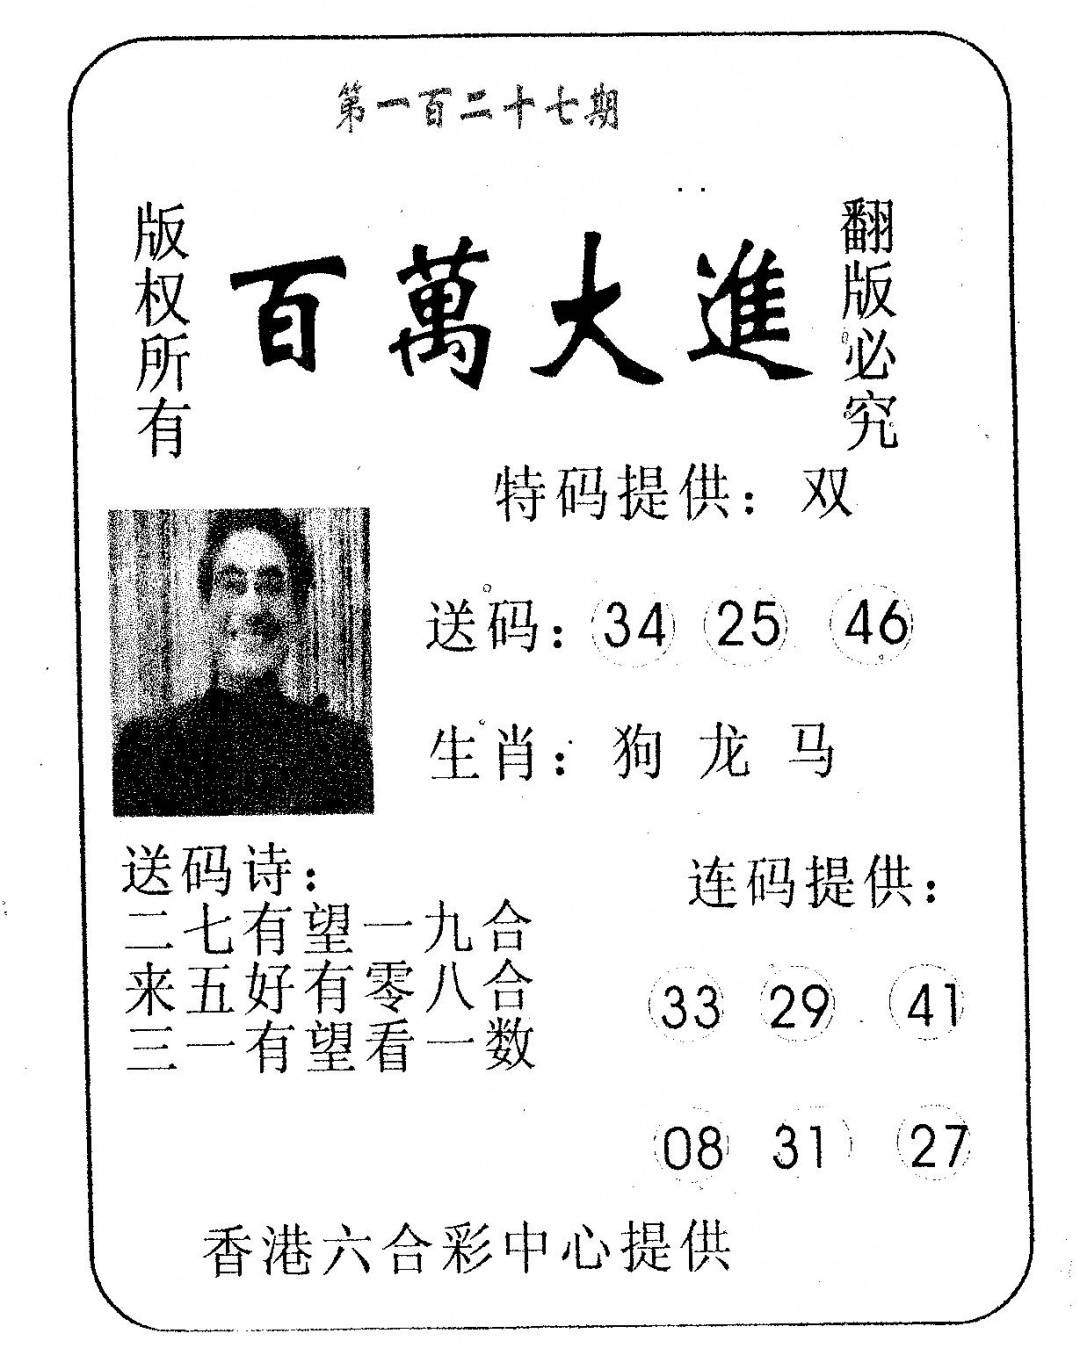 第一百二十七期
版权所有
百萬大進
翻版必究
特码提供：双
送码：34 25 46
生肖：狗 龙 马
送码诗：
二七有望一九合
来五好有零八合
三一有望看一数
连码提供：
33 29 41
08 31 27
香港六合彩中心提供